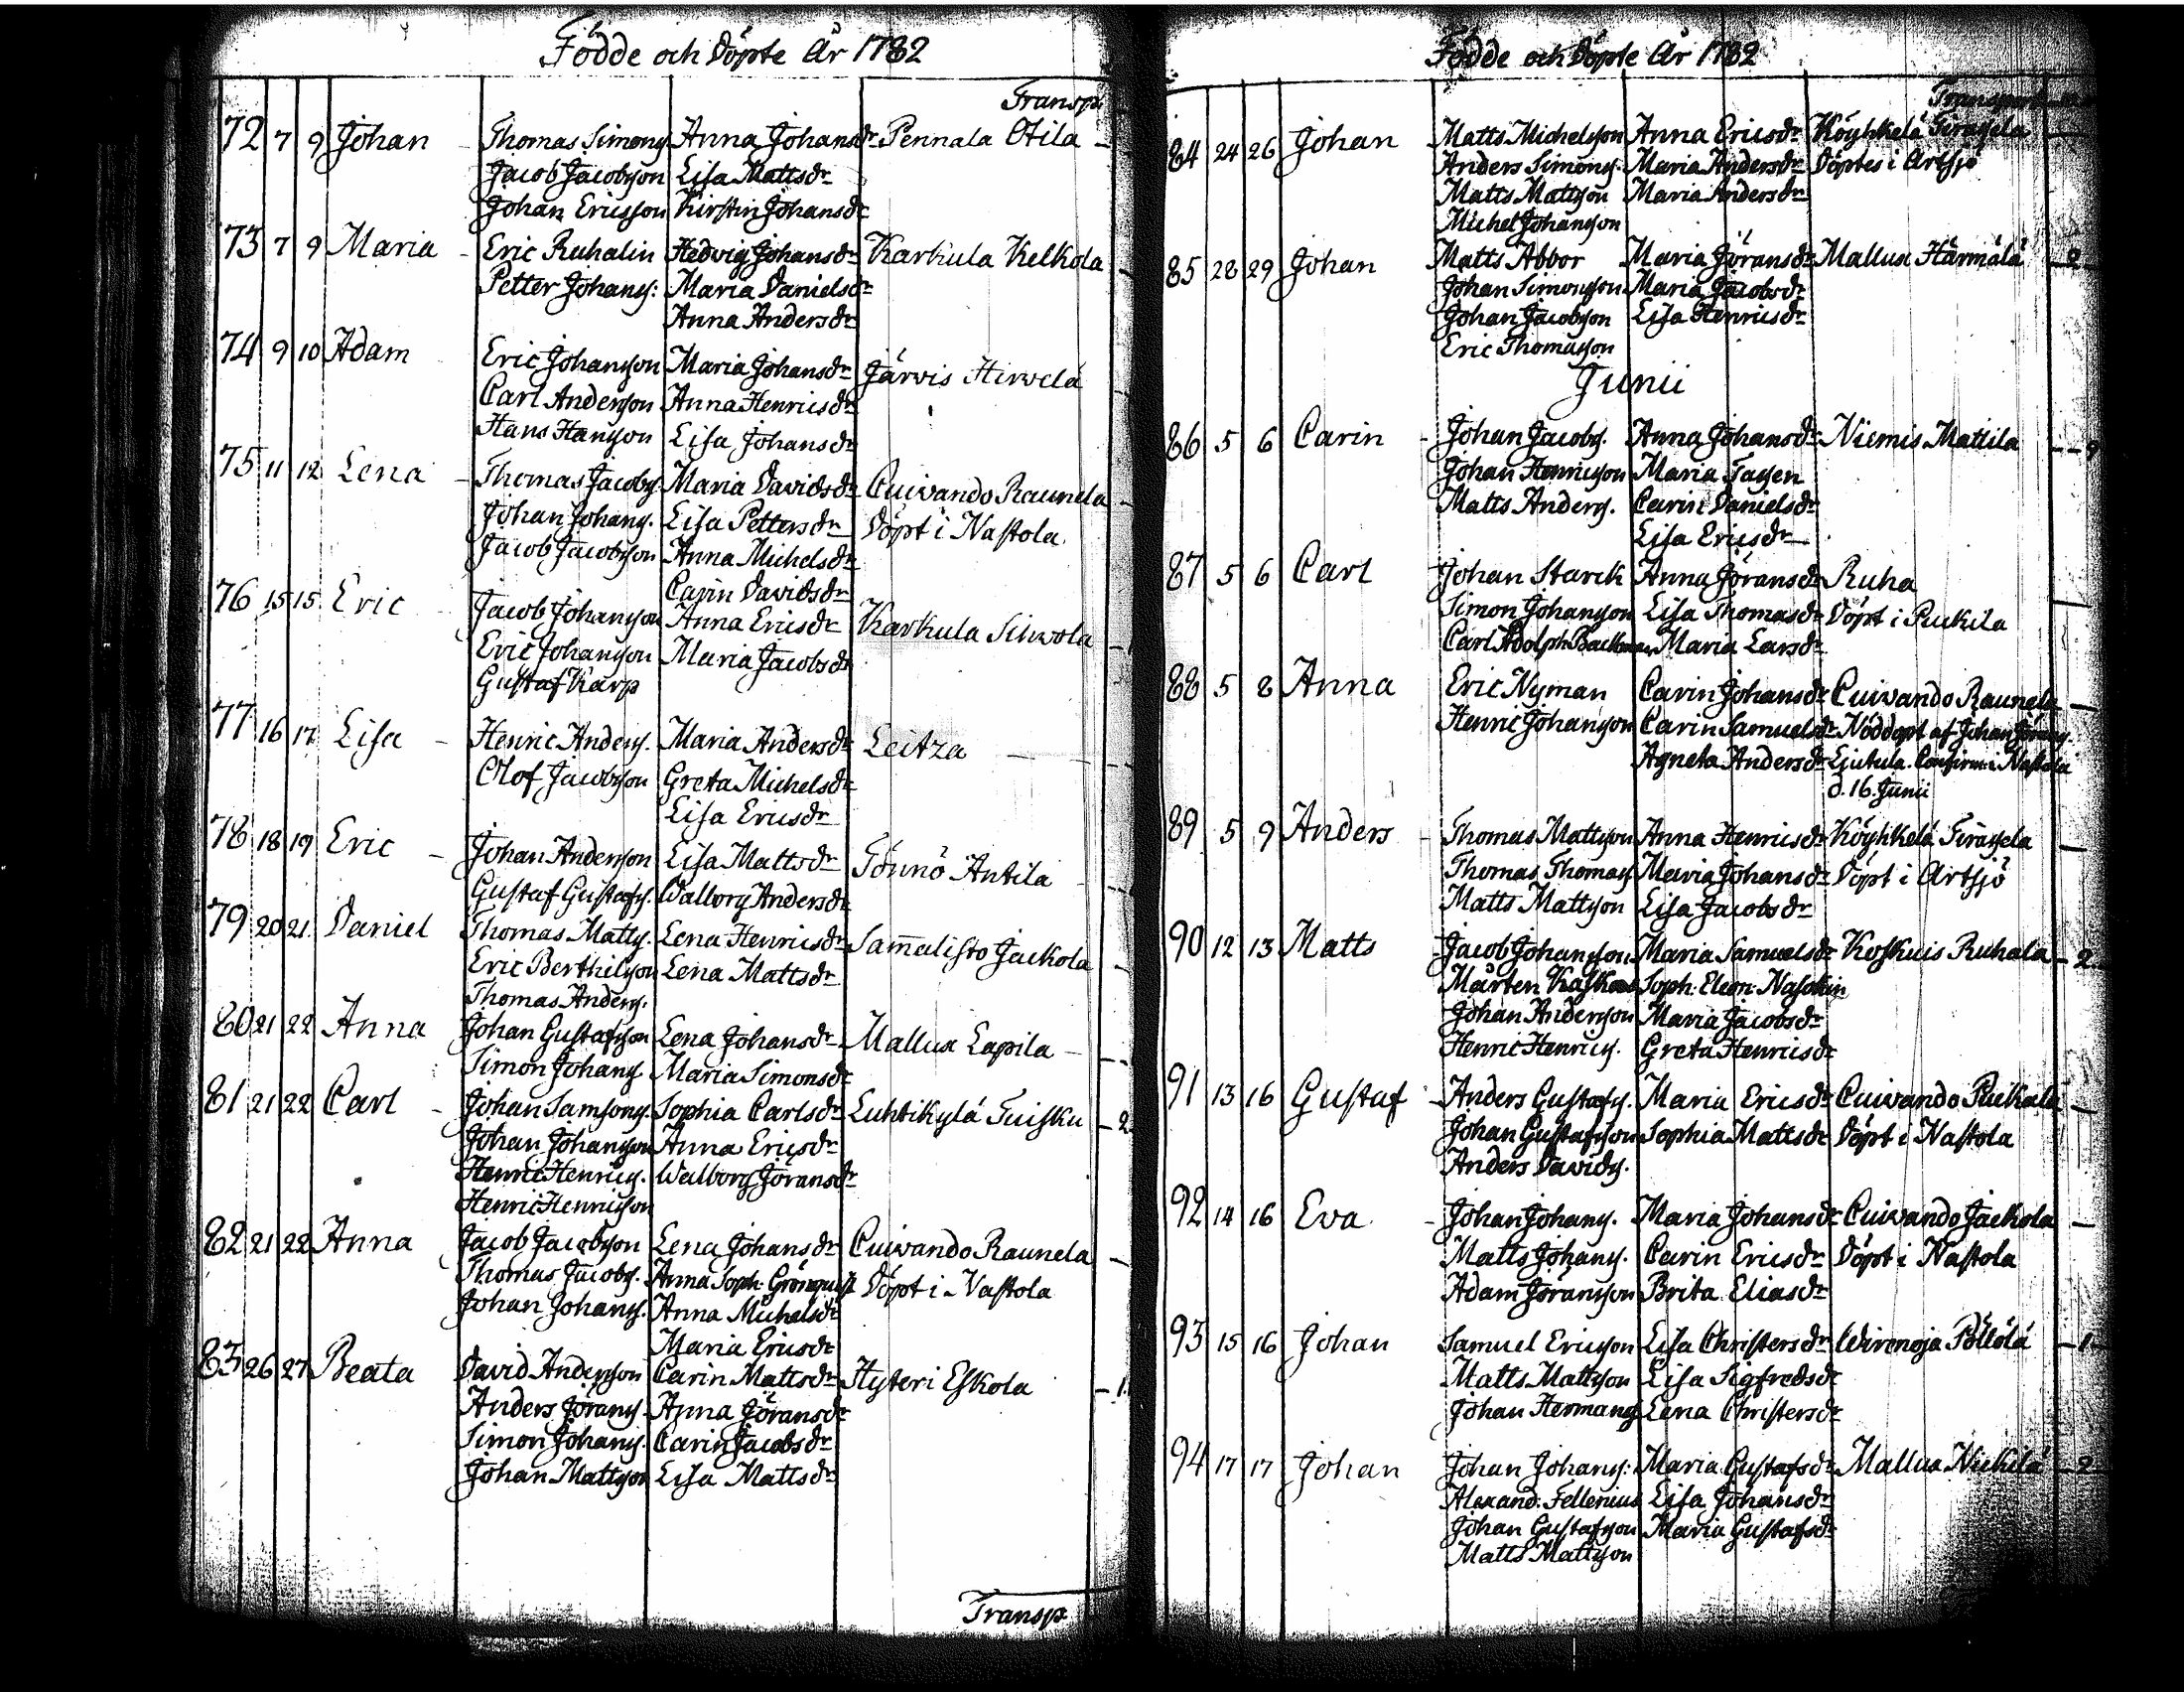 Födde och Döpte År 1782
Transp.
72 7 9 Johan - Thomas Simons. Anna Johansdr Pennala Otila -
Jacob Jacobsson Lisa Mattsdr
Johan Ericsson Kirstin Johansdr
73 7 9 Maria - Eric Ruhalin Hedvig Johansdr Karkula Kelkola
Petter Johans: Maria Danielsdr
Anna Andersdr
74 9 10 Adam Eric Johansson Maria Johansdr Järvis Hirvelä
Carl Andersson Anna Henricsdr
Hans Hansson Lisa Johansdr
75 11 12 Lena - Thomas Jacobs. Maria Davidsdr Cuivando Raunela
Johan Johans. Lisa Pettersdr Döpt i Nastola
Jacob Jacobsson Anna Michelsdr
Carin Davidsdr
76 15 15 Eric Jacob Johansson Anna Ericsdr Karkula Silwola
Eric Johansson Maria Jacobsdr
Gustaf Karp
77 16 17 Lisa - Henric Anders. Maria Andersdr Leitza
Olof Jacobsson Greta Michelsdr
Lisa Ericsdr
78 18 19 Eric - Johan Andersson Lisa Mattsdr Tönnö Antila
Gustaf Gustafs. Walborg Andersdr
79 20 21 Daniel Thomas Matts. Lena Henricsdr Sam̄alisto Jackola
Eric Berthilsson Lena Mattsdr
Thomas Anders.
80 21 22 Anna Johan Gustafsson Lena Johansdr Mallux Lapila -
Simon Johans. Maria Simonsdr
81 21 22 Carl - Johan Samsons. Sophia Carlsdr Luhtikylä Tuisku - 2
Johan Johansson Anna Ericsdr
Henric Henrics. Walborg Göransdr
Henric Henricsson
82 21 22 Anna Jacob Jacobsson Lena Johansdr Cuivando Raunela -
Thomas Jacobs. Anna Soph. Grönquist Döpt i Nastola
Johan Johans. Anna Michelsdr
Maria Ericsdr
83 26 27 Beata David Andersson Carin Mattsdr Hyteri Eskola - 1
Anders Jörans. Anna Göransdr
Simon Johans. Carin Jacobsdr
Johan Mattsson Lisa Mattsdr
Transp.
Födde och Döpte År 1782
Transport
84 24 26 Johan Matts Michelsson Anna Ericsdr Köyhkelä Tirassela
Anders Simons. Maria Andersdr Döptes i Artsjö
Matts Mattsson Maria Andersdr
Michel Johansson
85 28 29 Johan Matts Abbor Maria Göransdr Mallux Härmälä - 2
Johan Simonsson Maria Jacobsdr
Johan Jacobsson Lisa Henricsdr
Eric Thomasson
Junii
86 5 6 Carin - Johan Jacobs. Anna Johansdr Niemis Mattila
Johan Henricsson Maria Tasen
Matts Anders. Carin Danielsdr
Lisa Ericsdr
87 5 6 Carl Johan Starck Anna Göransdr Ruha
Simon Johansson Lisa Thomasdr Döpt i Puckila
Carl Adolph Backman Maria Larsdr
88 5 8 Anna Eric Nyman Carin Johansdr Cuivando Raunela
Henric Johansson Carin Samuelsdr Nöddöpt af Johan Görans.
Agneta Andersdr Ljutula. Confirm: i Nastola
d. 16. Junii
89 5 9 Anders - Thomas Mattsson Anna Henricsdr Köyhkelä Tirassela
Thomas Thomas. Maria Johansdr Döpt i Artsjö
Matts Mattsson Lisa Jacobsdr
90 12 13 Matts Jacob Johansson Maria Samuelsdr Koskuis Ruhala - 2
Mårten Soph. Eleon. Nasokin
Johan Andersson Maria Jacobsdr
Henric Henrics. Greta Henricsdr
91 13 16 Gustaf - Anders Gustafs. Maria Ericsdr Cuivando Puckala
Johan Gustafsson Sophia Mattsdr Döpt i Nastola
Anders Davids.
92 14 16 Eva - Johan Johans. Maria Johansdr Cuivando Jackola
Matts Johans. Carin Ericsdr Döpt i Nastola
Adam Göransson Brita Eliasdr
93 15 16 Johan Samuel Ericsson Lisa Christersdr Wirenoja Pöllölä - 1
Matts Mattsson Lisa Sigfredsdr
Johan Hermans. Lena Christersdr
94 17 17 Johan Johan Johans: Maria Gustafsdr Mallux Nickilä - 2
Alexand: Fellenius Lisa Johansdr
Johan Gustafsson Maria Gustafsdr
Matts Mattsson